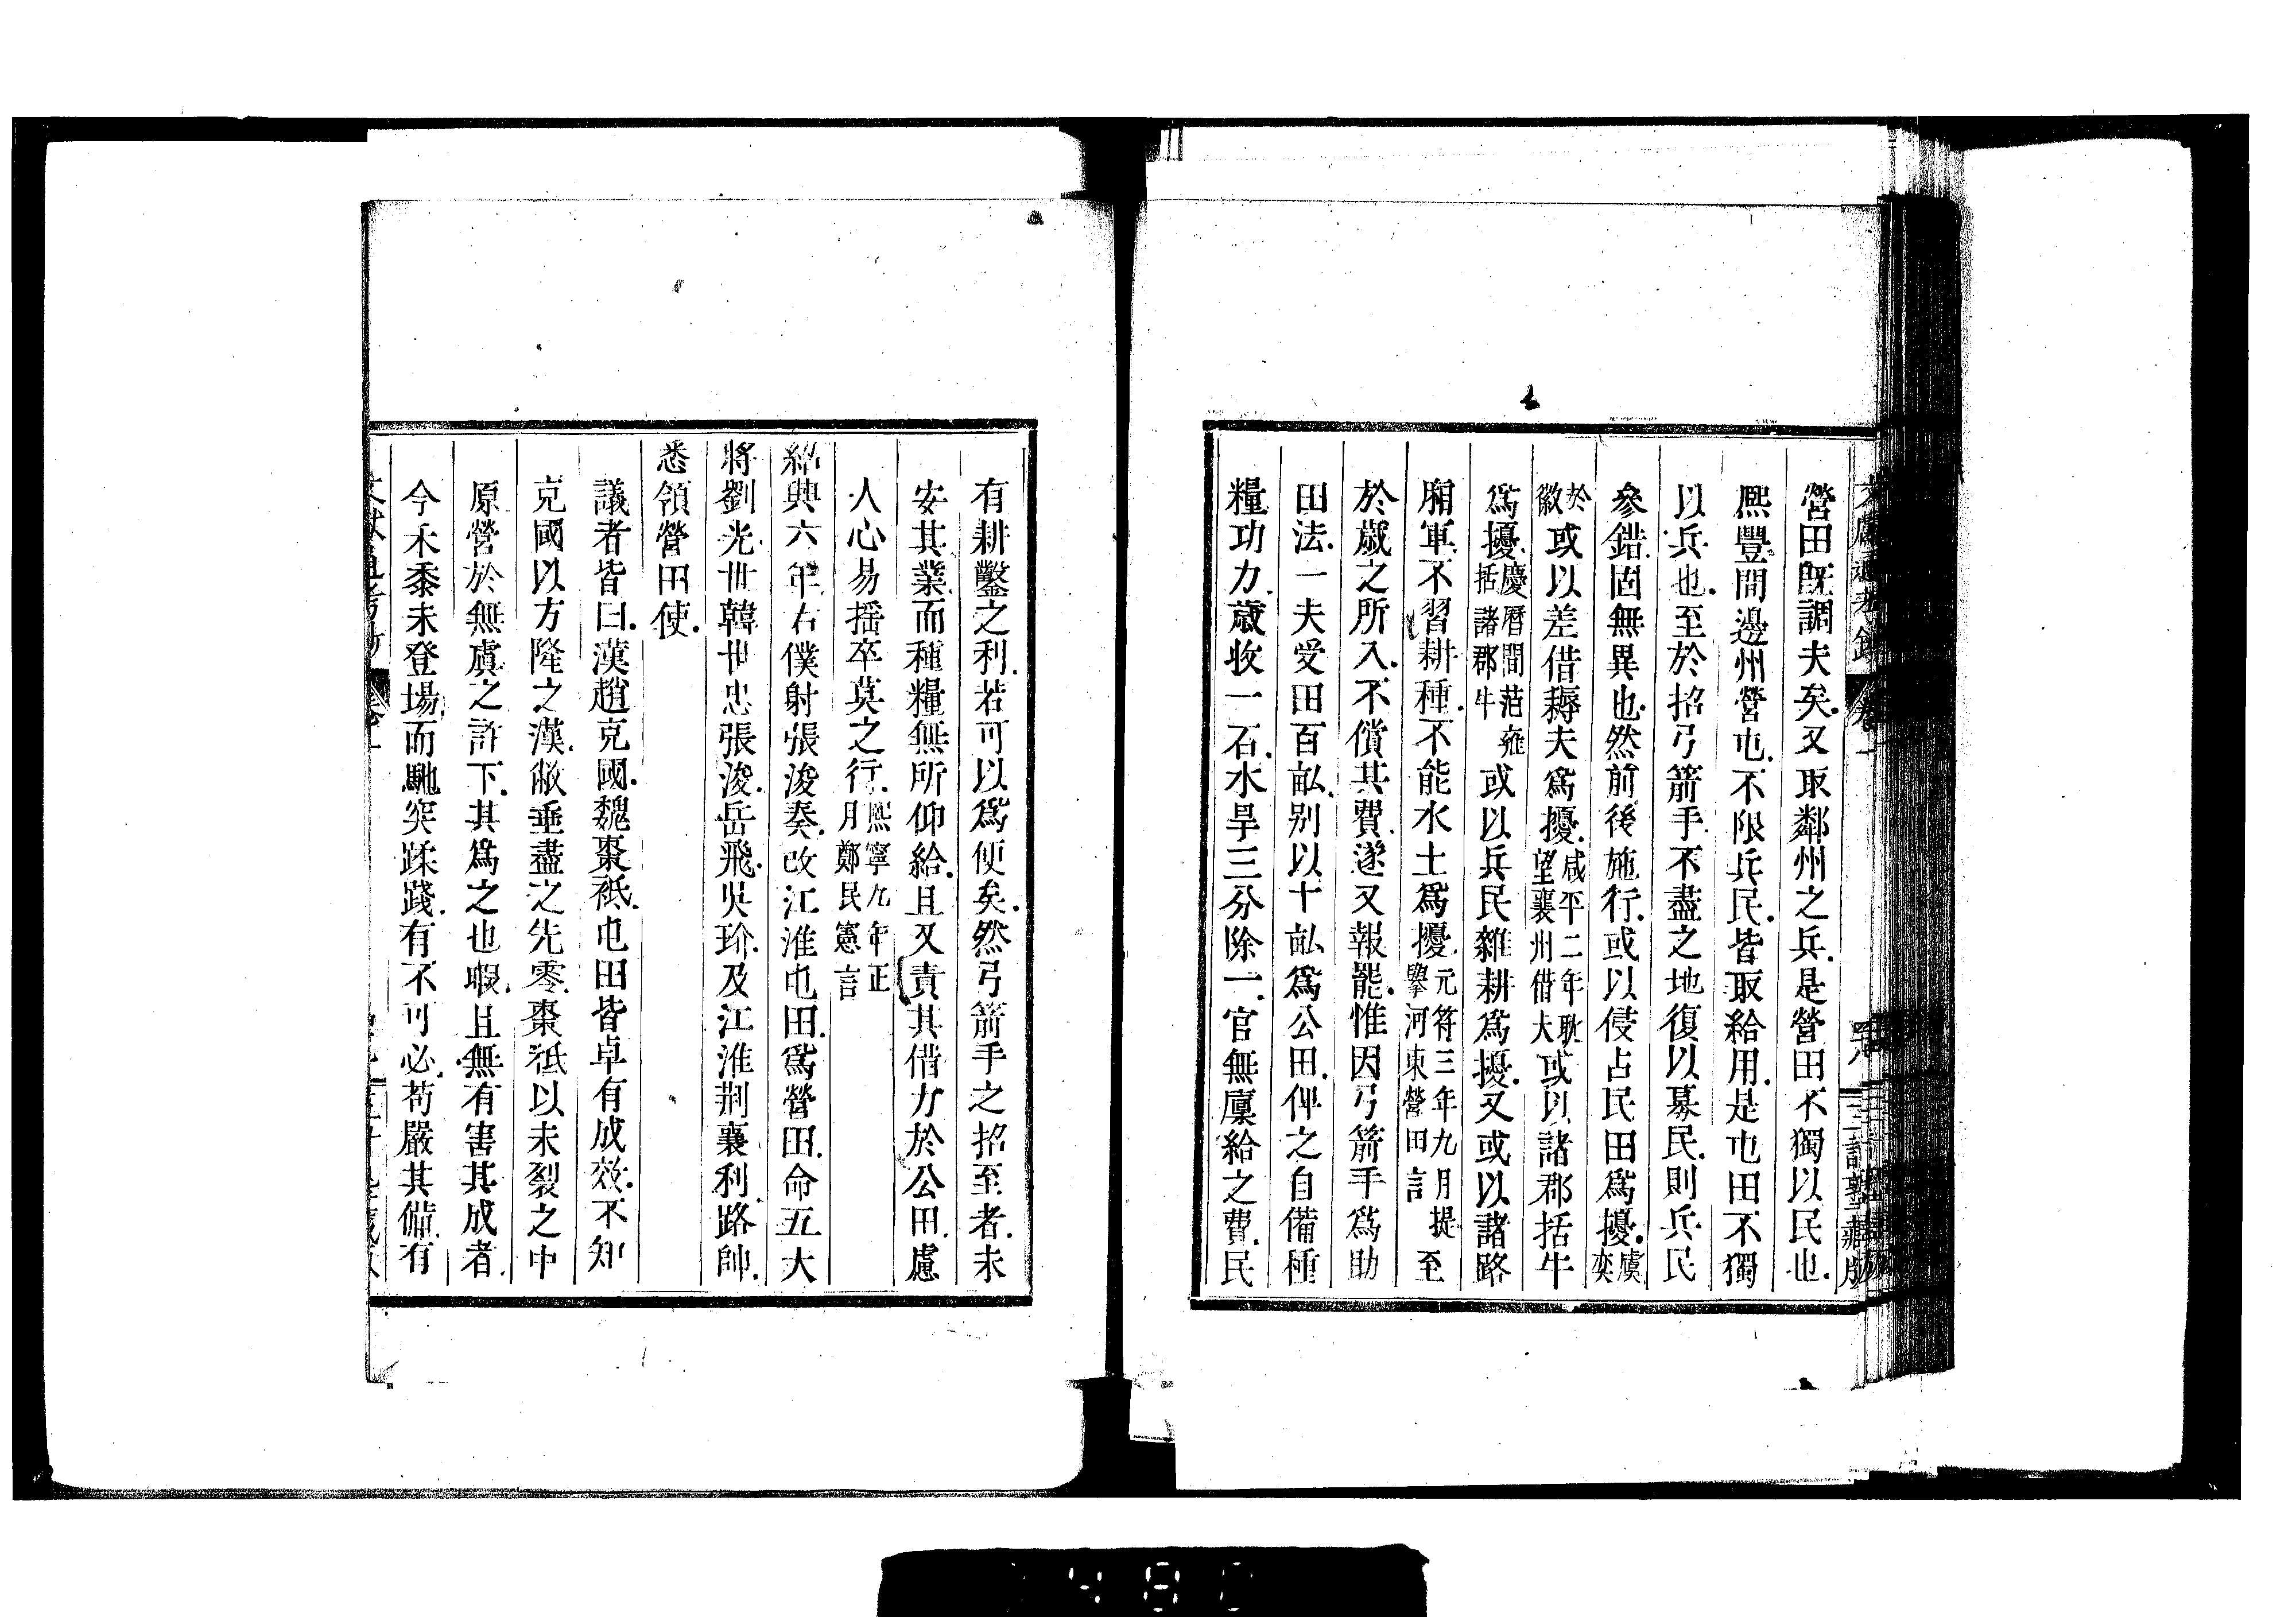 營田既調夫矣又取鄰州之兵是營田不獨以民也
熈豐間邊州營屯不限兵民皆取給用是屯田不獨
以兵也至於招弓箭手不盡之地復以募民則兵民
參錯固無異也然前後施行或以侵占民田爲擾虞奕
於徽或以差借耨夫爲擾咸平二年耿望襄州借夫或以諸郡括牛
爲擾慶曆間范雍括諸郡牛或以兵民雜耕爲擾又或以諸路
廂軍不習耕種不能水土爲擾元符三年九月提舉河東營田言至
於歲之所入不償其費遂又報罷惟因弓箭手爲助
田法一夫受田百畝别以十畝爲公田俾之自備種
糧功力歲收一石水旱三分除一官無廩給之費民
有耕鑿之利若可以爲便矣然弓箭手之招至者未
安其業而種糧無所仰給且又責其借力於公田慮
人心易摇卒莫之行熈寧九年正月鄭民憲言
紹興六年右僕射張浚奏改江淮屯田爲營田命五大
將劉光世韓世忠張浚岳飛吳玠及江淮荆襄利路帥
悉領營田使
議者皆曰漢趙克國魏棗祗屯田皆卓有成效不知
克國以方隆之漢敝垂盡之先零棗祗以未裂之中
原營於無虞之許下其爲之也暇且無有害其成者
今禾黍未登塲而馳突蹂踐有不可必苟嚴其備有